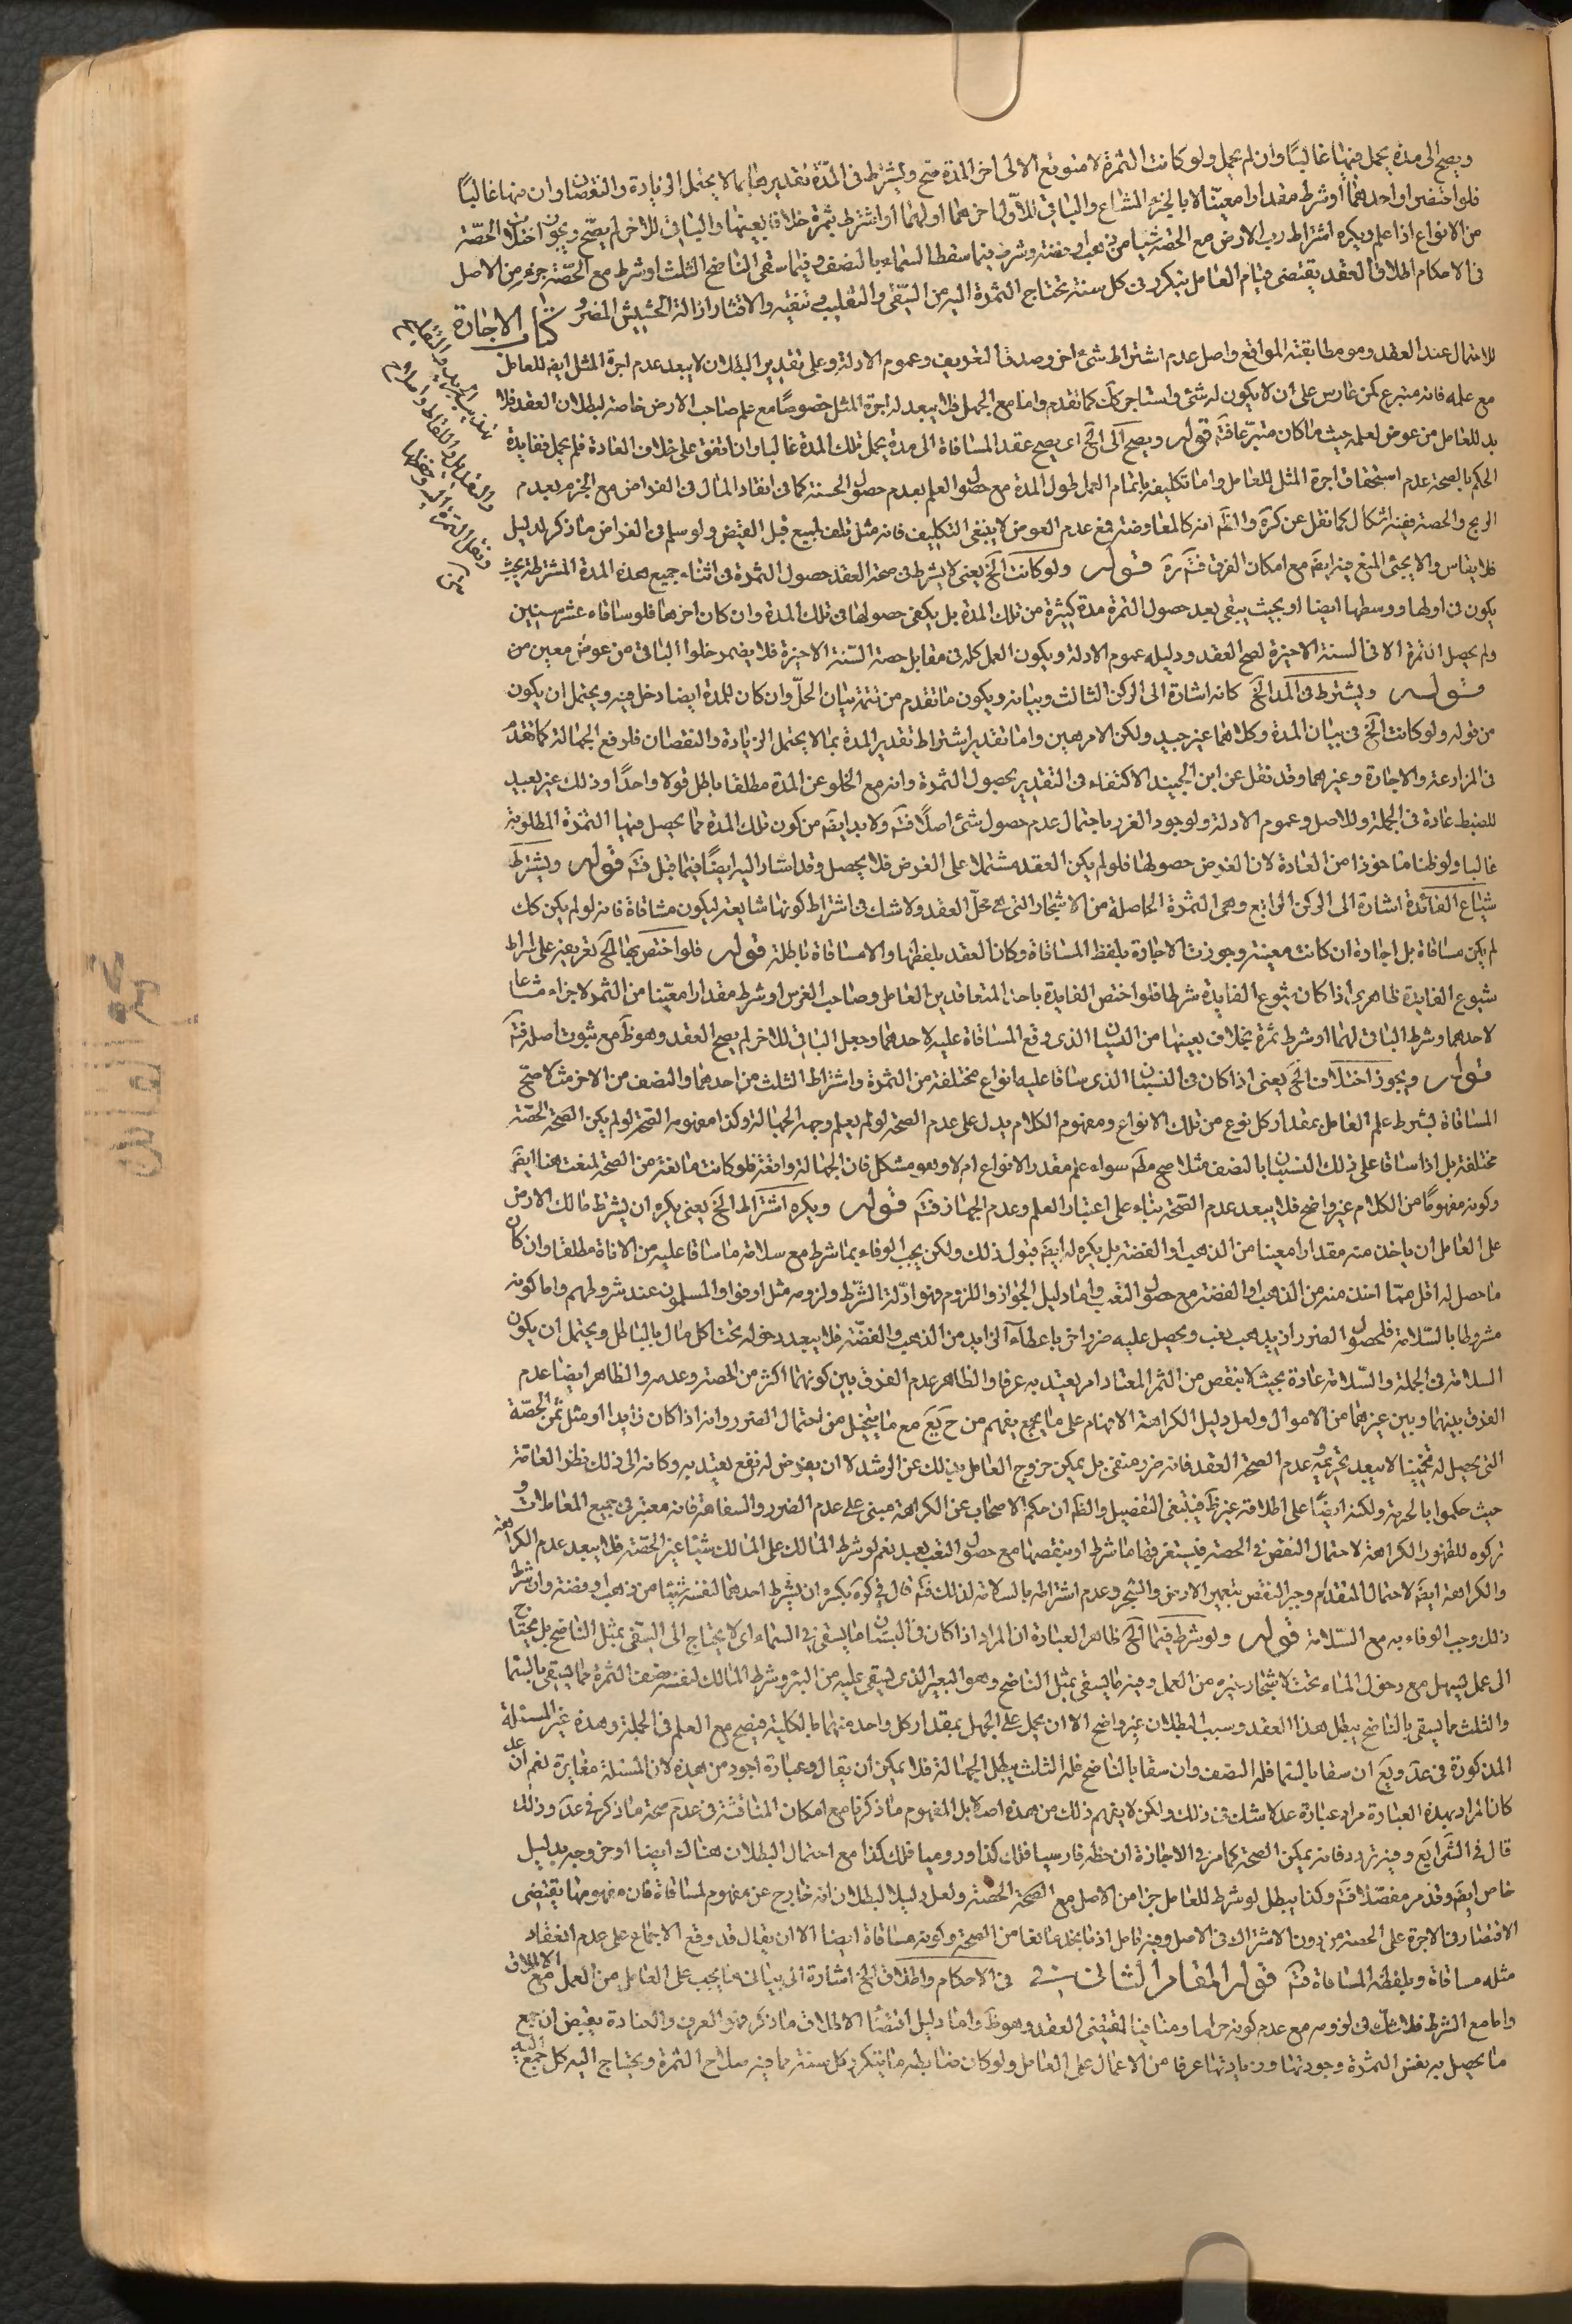 ويصح الى مدة يحمل فيها غالبًا وان لم يحمل ولو كانت الثمرة لا متوقع الا الى اخر المدة صح ويشترط في المدة تقديرها بما لا يحتمل الزيادة والنقصان وان فيها غالبًا
فلو اختص او احدهما او شرط مقدارا معينًا لا بالجزء المشاع والباقي للاول اخرهما اولهما او اشترط بثمرة خلاف بعينها والباقي للاخر لم يصح ويجوز اختلاف الحصة
من الانواع اذا علم ويكره اشتراط رب الارض مع الحصة شيا من ذهب او فضة وشرط فيما سقط السماء بالنصف وفيما سقى الناضح الثلث او شرط مع الحصة جزء من الاصل
في الاحكام اطلاق العقد يقتضي قيام العامل بتكرر في كل سنة تحتاج الثمرة اليه من السقي والتقليب وتنقية والاقتثار ازالة الحشيش المضر كتاب الاجارة
للاحتمال عند العقد وهو مطابقته المواقع واصل عدم اشتراط شئ اخر وصدق التعريف وعموم الادلة وعلى تقدير البطلان لا يبعد عدم اجرة المثل ايضا للعامل
مع علمه فانه متبرع كمن غارس على ان لا يكون له شئ واستاجر كك كما تقدم واما مع الجهل فلا يبعد له اجرة المثل خصوصًا مع علم صاحب الارض خاصة لبطلان العقد فلا
بد للعامل من عوض لعمله حيث ما كان متبرعا فتم قوله ويصح الى الخ اى يصح عقد المساقاة الى مدة يحمل تلك المدة غالبا وان اتفق على خلاف العادة فلم يحمل ففايدة
الحكم بالصحة عدم استحقاق اجرة المثل للعامل واما تكليفه باتمام العمل طول المدة مع حصول العلم بعدم حصول الحسنة كما في انقاد المال في القراض مع الجزم بعدم
الربح والحصة ففيه اشكال كما نقل عن كره والظم انه كالمعاوضة فمع عدم العوض لا ينبغي التكليف فانه مثل تلف المبيع قبل القبض ولو سلم في القراض ما ذكر لدليل
فلا يقاس والا يجئ المنع فيه ايضم مع امكان الفرق فتم قوله ولو كانت الخ يعنى لا يشرط في صحة العقد حصول الثمرة في اثناء جميع هذه المدة المشترطة بحيث
يكون في اولها ووسطها ايضا او بحيث يبقى بعد حصول الثمرة مدة كثيرة من تلك المدة بل يكفى حصولها في تلك المدة وان كان اخرها فلو ساقاه عشر سنين
ولم يحصل الثمرة الا في السنة الاخيرة لصح العقد ودليله عموم الادلة ويكون العمل كله في مقابل حصة السنة الاخيرة فلا يضر خلو الباقي من عوض معين من
قوله ويشترط في المد الخ كانه اشارة الى الركن الثالث وبيانه ويكون ما تقدم من تتمة بيان الحلّ وان كان للمدة ايضا دخل فيه ويحتمل ان يكون
من قوله ولو كانت الخ في بيان المدة وكلاهما غير جيد ولكن الامر هين واما تقدير اشتراط تقدير المدة بما لا يحتمل الزيادة والنقصان فلرفع الجهالة كما تقدم
في المزارعة والاجارة وغيرهما وقد نقل عن ابن الجنيد الاكتفاء في التقدير بحصول الثمرة وانه مع الخلو عن المدة مطلقا باطل قولا واحدًا وذلك غير بعيد
للضبط عادة في الجملة وللاصل وعموم الادلة ولوجود الغرر باحتمال عدم حصول شئ اصلًا فتم ولا بد ايضم من كون تلك المدة مما يحصل فيها الثمرة المطلوبة
غالبا ولو ظنا ماخوذا من العادة لان الغرض حصولها فلو لم يكن العقد مشتملا على الغرض فلا يحصل وقد اشار اليه ايضًا فيما قبل فتم قوله ويشترط
شياع الفائدة اشارة الى الركن الرابع وهى الثمرة الحاصلة من الاشجار التى هى محلّ العقد ولا شك في اشتراط كونها شايعة ليكون مساقاة فانه لو لم يكن كك
لم يكن مساقاة بل اجارة ان كانت معينة وجوزت الاجارة بلفظ المساقاة وكان العقد بلفظها والا مساقاة باطلة قوله فلو اختص بها الخ تفريعه على اشتراط
شيوع الفايدة ظاهر اى اذا كان شيوع الفايدة شرطا فلو اختص الفايدة باحد المتعاقدين العامل وصاحب الغرس او شرط مقدارا معينا من الثمر لاجزاء مشاعا
لاحدهما وشرط الباقي لهما او شرط ثمرة بخلاف بعينها من البستان الذى وقع المساقاة عليه لاحدهما وجعل الباقي للاخر لم يصح العقد وهوظ مع ثبوت اصله فتم
قوله ويجوز اختلاف الخ يعنى اذا كان في البستان الذى ساقا عليه انواع مختلفة من الثمرة واشتراط الثلث من احدهما والنصف من الاخر مثلا صح
المساقاة بشرط علم العامل بمقدار كل نوع من تلك الانواع ومفهوم الكلام يدل على عدم الصحة لو لم يعلم وجهه الجهالة وكذا مفهومه الصحة لو لم يكن الصحة الحصة
مختلفة بل اذا ساقا على ذلك البستان بالنصف مثلا صح مطم سواء علم مقدر الانواع ام لا وهو مشكل فان الجهالة واقعة فلو كانت مانعة من الصحة لمنعت هنا ايضم
وكونه مفهومًا من الكلام غير واضح فلا يبعد عدم الصحة بناء على اعتبار العلم وعدم الجهاز فتم قوله ويكره اشتراط الخ يعنى يكره ان يشرط مالك الارض
على العامل ان ياخذ منه مقدارا معينا من الذهب او الفضة بل يكره له ايضم قبول ذلك ولكن يجب الوفاء بما شرط مع سلامة ما ساقا عليه من الافاة مطلقا وان كان
ما حصل له اقل ممّا اخذ منه من الذهب والفضة مع حصول التعب واما دليل الجواز واللزوم فهو ادلة الشرط ولزومه مثل اوفوا والمسلمون عند شروطهم واما كونه
مشروطا بالسلامة فلحصول الضرر ان يذهب بغب ويحصل عليه ضرر اخر باعطاء الزايد من الذهب والفضة فلا يبعد دخوله تحت اكل مال بالباطل ويحتمل ان يكون
السلامة في الجملة والسلامة عادة بحيث لا ينقص من الثمر المعتاد امر يعتد به عرفا والظاهر عدم الفرق بين كونهما اكثر من الحصة وعدمه والظاهر ايضا عدم
الفرق بينهما وبين غيرهما من الاموال ولعل دليل الكراهة الاتهام على ما يفهم من مع ما يتخيل من احتمال الضرر وانه اذا كان زايدا او مثل ثمن الحصة
التى يحصل له تخمينا لا يبعد تحريمه وعدم الصحة العقد فانه ضرر منفى بل يمكن خروج العامل بذلك عن الرشد لا ان يعرض له نفع يعتد به وكانه الى ذلك نظر العامة
حيث حكموا بالحرمة ولكنه ايضًا على اطلاقه غير ظم فينبغى التفصيل والظم ان حكم الاصحاب عن الكراهة مبنى على عدم الضرر والسفاهة فانه معتبر في جميع المعاملات و
تركوه للظهور الكراهة لاحتمال النقص في الحصة فيستغرقها ما شرط او ينقصها مع حصول التعب بعيد نعم لو شرط المالك على المالك شيئا غير الحصة فلا يبعد عدم الكراهة
والكراهة ايضم لاحتمال المتقدم وجبر النقص بتعيين الارض والشجر وعدم اشتراطه بالسلامة لذلك فتم قال في كره يكره ان يشرط احدهما لنفسه شيئا من ذهب او فضة وان شرط
ذلك وجب الوفاء به مع السلامة قوله ولو شرط فيما الخ ظاهر العبارة ان المراد اذا كان في البستان ما يسقى في السماء اى لا يحتاج الى السقى بمثل الناضح بل محتاجا
الى عمل يسهل مع دخول الماء تحت الاشجار وغيره من العمل وفيه ما يسقى بمثل الناضح وهو البعير الذى يسقى عليه من البئر وشرط المالك لنفسه نصف الثمرة مما يسقى بالسما
والثلث مما يسقى بالناضح يبطل هذا العقد وسبب البطلان غير واضح الا ان يحمل على الجهل بمقدار كل واحد منهما بالكلية فيصح مع العلم في الجملة وهذه غير المسئلة
المذكورة في عد ويع ان سقا بالسما فله النصف وان سقا بالناضح فله الثلث يبطل الجهالة فلا يمكن ان يقال وعبارة اجود من هذه لان المسئلة مغايرة نعم ان
كان المراد بهذه العبارة مراد عبارة عد لا شك في ذلك ولكن لا يفهم ذلك من هذه اصلا بل المفهوم ما ذكرنا مع امكان المناقشة في عدم صحة ما ذكر في عد وذلك
قال في الشرايع وفيه تردد فانه يمكن الصحة كما مر في الاجارة ان خطه فارسيا فلك كذا وروميا فلك كذا مع احتمال البطلان هناك ايضا او خروجه بدليل
خاص ايضم وقد مر مفصلا فتم وكذا يبطل لو شرط للعامل جزا من الاصل مع الصحة الحصة ولعل دليل البطلان انه خارج عن مفهوم المساقاة فان مفهومها يقتضى
الاقتصار في الاجرة على الحصة من دون الاشتراك في الاصل وفيه تامل اذ ما نجد مانعا من الصحة وكونه مساقاة ايضا الا ان يقال قد وقع الاجماع على عدم انعقاد
مثله مساقاة وبلفظه المساقاة فتم قوله المقام الثانى في الاحكام واطلاق الخ اشارة الى بيان ما يجب على العامل من العمل مع الاطلاق
واما مع الشرط فلا شك في لزومه مع عدم كونه حراما ومنافيا لمقتضى العقد وهوظ واما دليل اقتضاء الاطلاق ما ذكر فهو العرف والعادة يقتضى ان جميع
ما يحصل به نفس الثمرة وجودتها وزيادتها عرفا من الاعمال على العامل ولو كان ضابطه ما يتكرر كل سنة مما فيه صلاح الثمرة ويحتاج اليه كل جميع